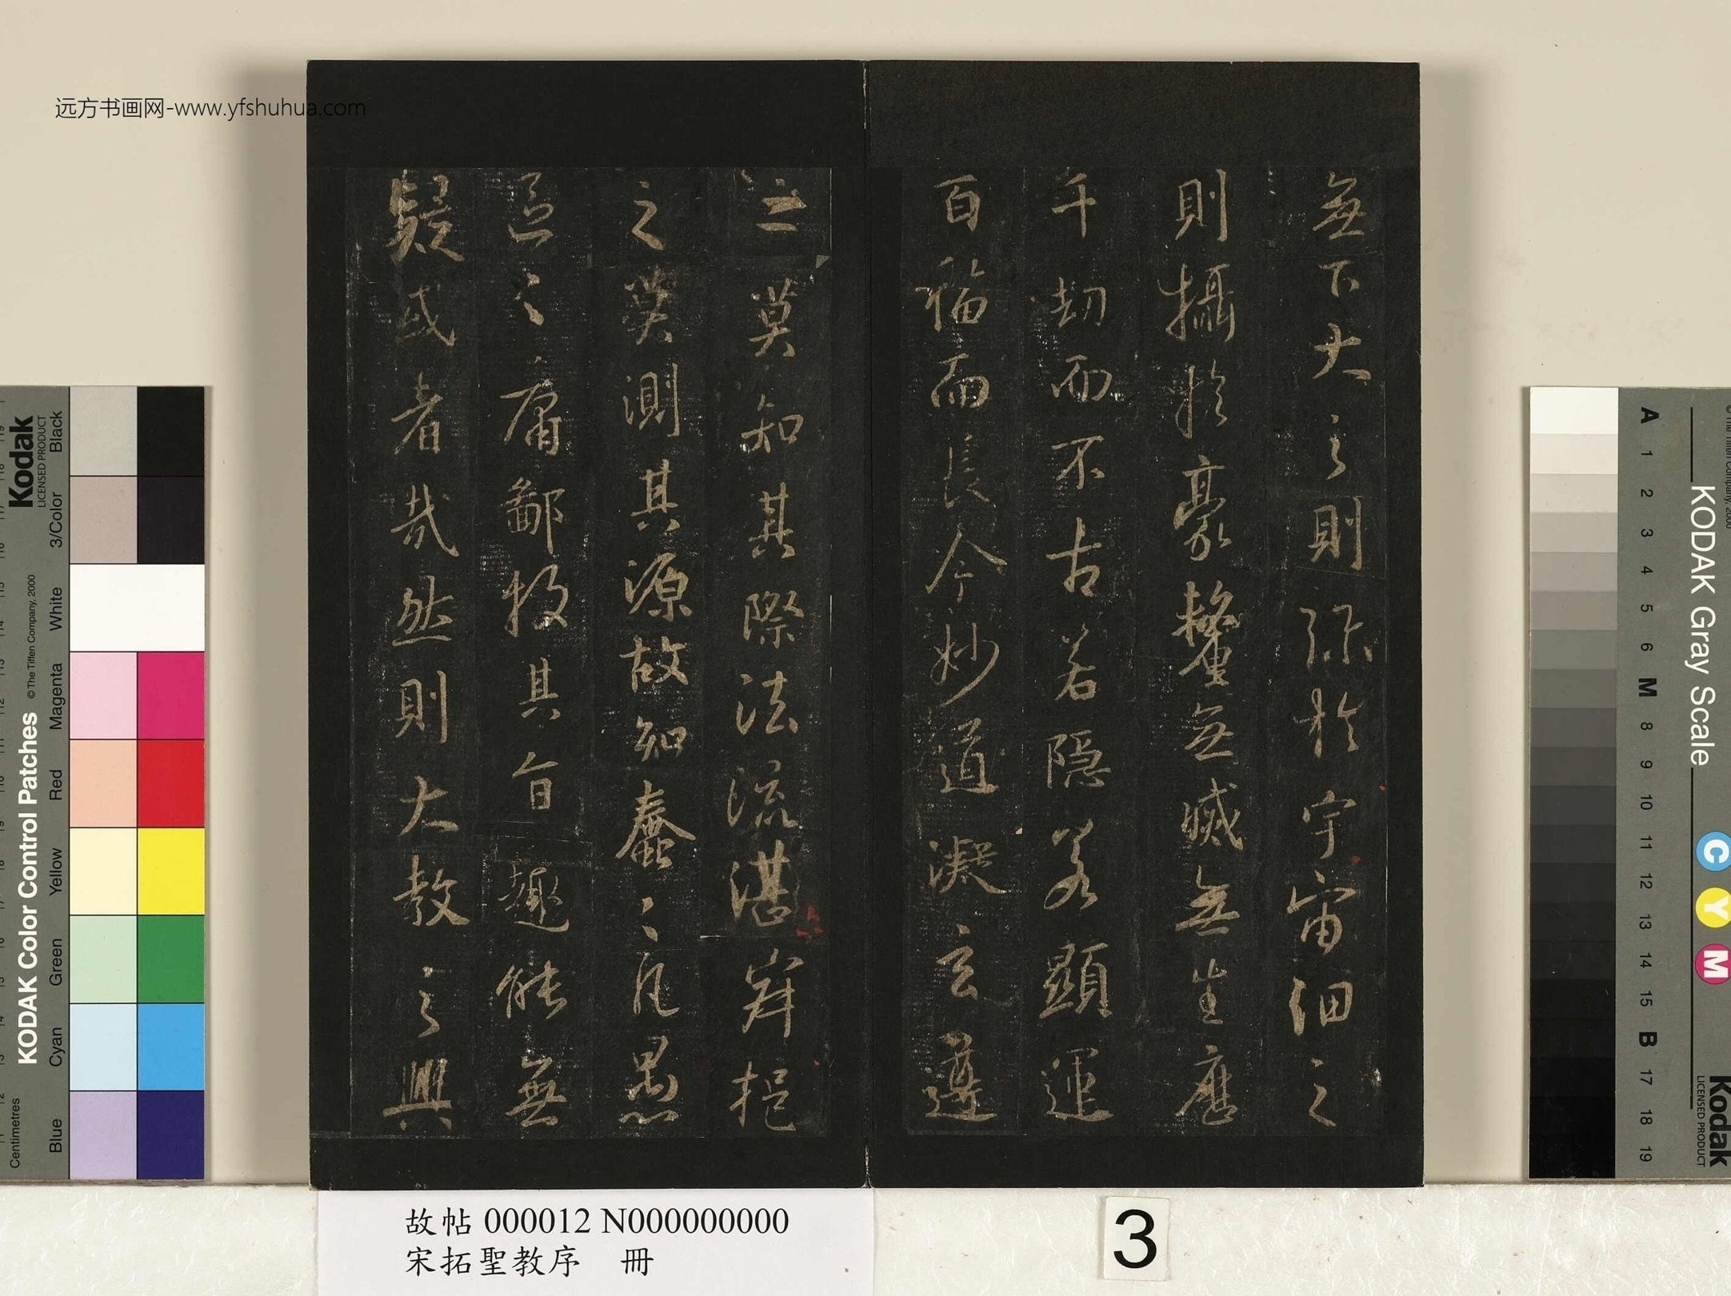 远方书画网-www.yfshuhua.com
無下大之則弥於宇宙細之
則攝於豪氂無滅無生歷
千劫而不古若隱若顯運
百福而長今妙道凝玄遵
之莫知其際法流湛寂挹
之莫測其源故知蠢〻凡愚
區〻庸鄙投其旨趣能無
疑或者哉然則大教之興
故帖 000012 N000000000
宋拓聖教序 冊
3
KODAK Color Control Patches
Kodak
LICENSED PRODUCT
© The Tiffen Company, 2000
Centimetres
Blue
Cyan
Green
Yellow
Red
Magenta
White
3/Color
Black
KODAK Gray Scale
A 1 2 3 4 5 6 M 8 9 10 11 12 13 14 15 B 17 18 19
C
Y
M
Kodak
LICENSED PRODUCT